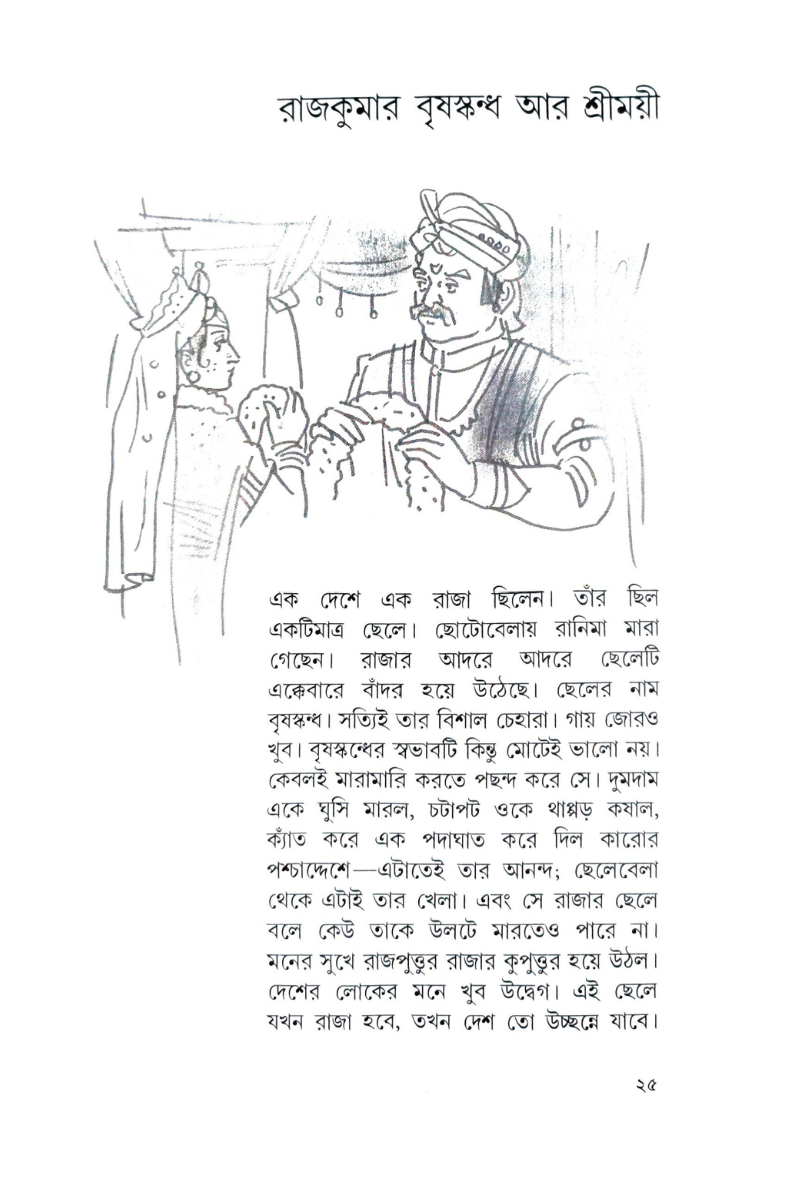 রাজকুমার বৃষস্কন্ধ আর শ্রীময়ী
এক দেশে এক রাজা ছিলেন। তাঁর ছিল
একটিমাত্র ছেলে। ছোটোবেলায় রানিমা মারা
গেছেন। রাজার আদরে আদরে ছেলেটি
এক্কেবারে বাঁদর হয়ে উঠেছে। ছেলের নাম
বৃষস্কন্ধ। সত্যিই তার বিশাল চেহারা। গায় জোরও
খুব। বৃষস্কন্ধের স্বভাবটি কিন্তু মোটেই ভালো নয়।
কেবলই মারামারি করতে পছন্দ করে সে। দুমদাম
একে ঘুসি মারল, চটাপট ওকে থাপ্পড় কষাল,
ক্যাঁত করে এক পদাঘাত করে দিল কারোর
পশ্চাদ্দেশে—এটাতেই তার আনন্দ; ছেলেবেলা
থেকে এটাই তার খেলা। এবং সে রাজার ছেলে
বলে কেউ তাকে উলটে মারতেও পারে না।
মনের সুখে রাজপুত্তুর রাজার কুপুত্তুর হয়ে উঠল।
দেশের লোকের মনে খুব উদ্বেগ। এই ছেলে
যখন রাজা হবে, তখন দেশ তো উচ্ছন্নে যাবে।
২৫